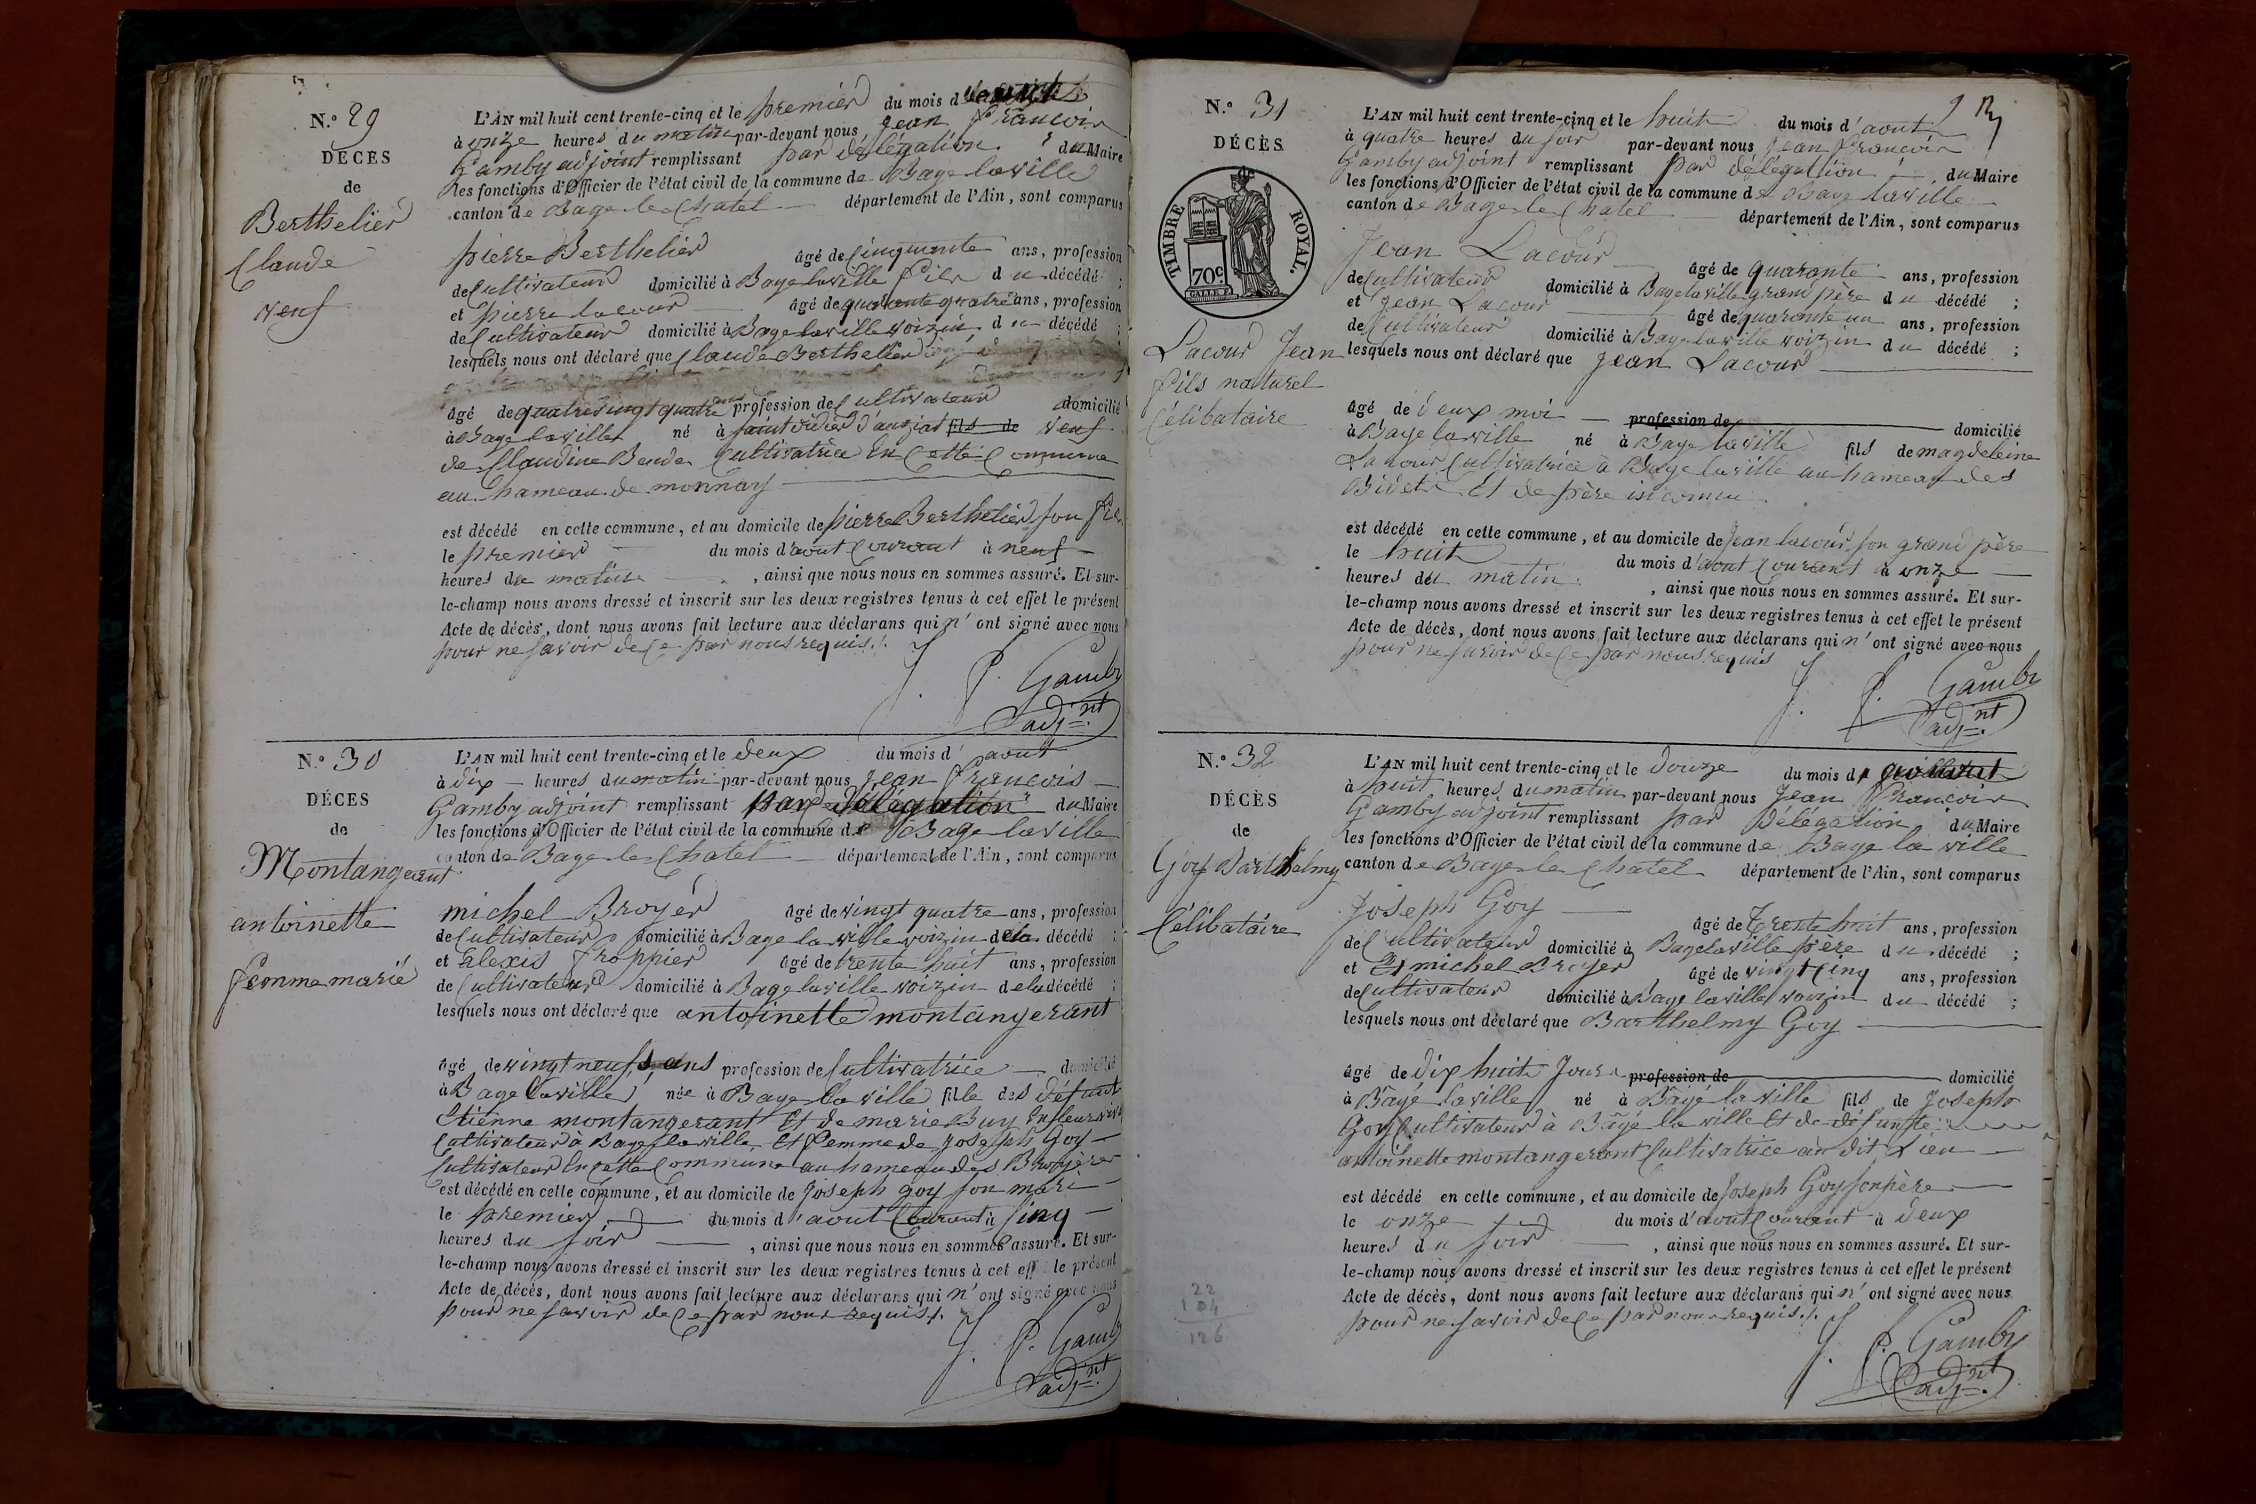 N.o 29
DÉCES
de
Berthelier
Claude
veuf
L'AN mil huit cent trente-cinq et le premier du mois d'
à onze heures du matin par-devant nous Jean François
Gamby adjoint remplissant par délégation du Maire
les fonctions d'Officier de l'état civil de la commune de Bage laville
canton de Bage le Chatel département de l'Ain, sont comparus
pierre Berthelier âgé de Cinquante ans, profession
de Cultivateur domicilié à Bage laville fils du décédé ;
et pierre lacour âgé de quarante quatre ans, profession
de Cultivateur domicilié à Bage laville voizin du décédé ;
lesquels nous ont déclaré que Claude Berthelier
âgé de quatrevingt quatre ans profession de Cultivateur domicilié
à Bage laville né à saint didier d'aussiat fils de veuf
de Claudine Cultivatrice En Cette Commune
au hameau de monnay
est décédé en cette commune, et au domicile de pierre Berthelier son fils
le premier du mois d'aout Courant à neuf
heures du matin, ainsi que nous nous en sommes assuré. Et sur-
le-champ nous avons dressé et inscrit sur les deux registres tenus à cet effet le présent
Acte de décès, dont nous avons fait lecture aux déclarans qui n'ont signé avec nous
pour ne savoir de Ce par nous requis ./.
J. F. Gamby
adj.nt
N.o 30
DÉCES
de
Montangerant
antoinette
femme marié
L'AN mil huit cent trente-cinq et le deux du mois d'aout
à dix heures du matin par-devant nous Jean François
Gamby adjoint remplissant par délégation du Maire
les fonctions d'Officier de l'état civil de la commune de Bage laville
canton de Bage le Chatel département de l'Ain, sont comparus
michel Broyer âgé de vingt quatre ans, profession
de Cultivateur domicilié à Bage la ville voizin de la décédé ;
et alexis froppier âgé de trente huit ans, profession
de Cultivateur domicilié à Bage laville voizin de la décédé ;
lesquels nous ont déclaré que antoinette montangerant
âgé de vingt neuf ans profession de Cultivatrice domicilié
à Bage laville née à Bage la ville fille des défunt
Etienne montangerant Et de marie Buy
Cultivateur à Bage laville Et femme de Joseph Goy
Cultivateur En cette Commune au hameau des Broyères
est décédé en cette commune, et au domicile de Joseph goy son mari
le premier du mois d'aout Courant à Cinq
heures du soir, ainsi que nous nous en sommes assuré. Et sur-
le-champ nous avons dressé et inscrit sur les deux registres tenus à cet effet le présent
Acte de décès, dont nous avons fait lecture aux déclarans qui n'ont signé avec nous
pour ne savoir de Ce par nous requis ./.
J. F. Gamby
adj.nt
N.o 31
DÉCÈS
TIMBRE ROYAL.
70c
Lacour Jean
fils naturel
Célibataire
L'AN mil huit cent trente-cinq et le huit du mois d'aout
à quatre heures du soir par-devant nous Jean François
Gamby adjoint remplissant par délégation du Maire
les fonctions d'Officier de l'état civil de la commune de Bage laville
canton de Bage le Chatel département de l'Ain, sont comparus
Jean Lacour âgé de quarante ans, profession
de Cultivateur domicilié à Bage laville grand père du décédé ;
et Jean Lacour âgé de quarante un ans, profession
de Cultivateur domicilié à Bage laville voizin du décédé ;
lesquels nous ont déclaré que Jean Lacour
âgé de deux moi profession de domicilié
à Bage laville né à Bage laville fils de magdeleine
Lacour Cultivatrice à Bage laville au hameau des
Bidets Et de père inconnu
est décédé en cette commune, et au domicile de Jean lacour son grand père
le huit du mois d'aout Courant à onze
heures du matin, ainsi que nous nous en sommes assuré. Et sur-
le-champ nous avons dressé et inscrit sur les deux registres tenus à cet effet le présent
Acte de décès, dont nous avons fait lecture aux déclarans qui n'ont signé avec nous
pour ne savoir de Ce par nous requis
J. F. Gamby
adj.nt
N.o 32
DÉCÈS
de
Goy Barthelmy
Célibataire
L'AN mil huit cent trente-cinq et le douze du mois d'
à huit heures du matin par-devant nous Jean François
Gamby adjoint remplissant par Délégation du Maire
les fonctions d'Officier de l'état civil de la commune de Bage la ville
canton de Bage le Chatel département de l'Ain, sont comparus
Joseph Goy âgé de Trente huit ans, profession
de Cultivateur domicilié à Bage laville père du décédé ;
et Et michel Broyer âgé de vingt Cinq ans, profession
de Cultivateur domicilié à Bage laville voizin du décédé ;
lesquels nous ont déclaré que Barthelmy Goy
âgé de dix huit Jours profession de domicilié
à Bâgé laville né à Bâgé la ville fils de Joseph
Goy Cultivateur à Bâgé la ville Et de défunte
antoinette montangerant Cultivatrice au dit Lieu
est décédé en cette commune, et au domicile de Joseph Goy son père
le onze du mois d'aout Courant à deux
heures du soir, ainsi que nous nous en sommes assuré. Et sur-
le-champ nous avons dressé et inscrit sur les deux registres tenus à cet effet le présent
Acte de décès, dont nous avons fait lecture aux déclarans qui n'ont signé avec nous
pour ne savoir de Ce par nous requis ./.
J. F. Gamby
adj.nt
22
104
126